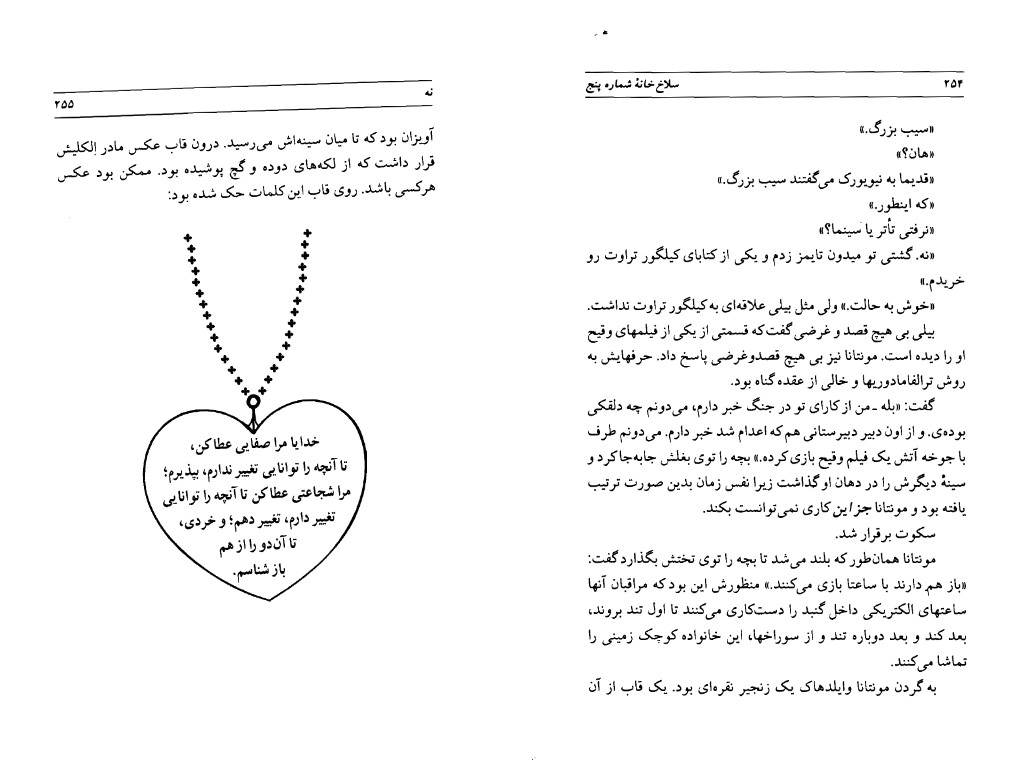 ۲۵۴
سلاخ‌خانهٔ شماره پنج
«سیب بزرگ.»
«هان؟»
«قدیما به نیویورک می‌گفتند سیب بزرگ.»
«که اینطور.»
«نرفتی تأتر یا سینما؟»
«نه. گشتی تو میدون تایمز زدم و یکی از کتابای کیلگور تراوت رو
خریدم.»
«خوش به حالت.» ولی مثل بیلی علاقه‌ای به کیلگور تراوت نداشت.
بیلی بی هیچ قصد و غرضی گفت که قسمتی از یکی از فیلمهای وقیح
او را دیده است. مونتانا نیز بی هیچ قصدوغرضی پاسخ داد. حرفهایش به
روش ترالفامادوریها و خالی از عقده گناه بود.
گفت: «بله ـ من از کارای تو در جنگ خبر دارم، می‌دونم چه دلقکی
بوده‌ی. و از اون دبیر دبیرستانی هم که اعدام شد خبر دارم. می‌دونم طرف
با جوخه آتش یک فیلم وقیح بازی کرده.» بچه را توی بغلش جابه‌جا کرد و
سینهٔ دیگرش را در دهان او گذاشت زیرا نفس زمان بدین صورت ترتیب
یافته بود و مونتانا جز این کاری نمی‌توانست بکند.
سکوت برقرار شد.
مونتانا همان‌طور که بلند می‌شد تا بچه را توی تختش بگذارد گفت:
«باز هم دارند با ساعتا بازی می‌کنند.» منظورش این بود که مراقبان آنها
ساعتهای الکتریکی داخل گنبد را دست‌کاری می‌کنند تا اول تند بروند،
بعد کند و بعد دوباره تند و از سوراخها، این خانواده کوچک زمینی را
تماشا می‌کنند.
به گردن مونتانا وایلدهاک یک زنجیر نقره‌ای بود. یک قاب از آن
نه
۲۵۵
آویزان بود که تا میان سینه‌اش می‌رسید. درون قاب عکس مادر اِلکلیش
قرار داشت که از لکه‌های دوده و گچ پوشیده بود. ممکن بود عکس
هرکسی باشد. روی قاب این کلمات حک شده بود:
خدایا مرا صفایی عطا کن،
تا آنچه را توانایی تغییر ندارم، بپذیرم؛
مرا شجاعتی عطا کن تا آنچه را توانایی
تغییر دارم، تغییر دهم؛ و خردی،
تا آن‌دو را از هم
باز شناسم.